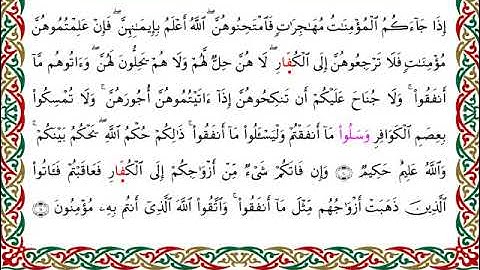 إِذَا جَآءَكُمُ ٱلْمُؤْمِنَٰتُ مُهَٰجِرَٰتٍ فَٱمْتَحِنُوهُنَّ ۖ ٱللَّهُ أَعْلَمُ بِإِيمَٰنِهِنَّ ۖ فَإِنْ عَلِمْتُمُوهُنَّ
مُؤْمِنَٰتٍ فَلَا تَرْجِعُوهُنَّ إِلَى ٱلْكُفَّارِ ۖ لَا هُنَّ حِلٌّ لَّهُمْ وَلَا هُمْ يَحِلُّونَ لَهُنَّ ۖ وَءَاتُوهُم مَّآ
أَنفَقُوا۟ ۚ وَلَا جُنَاحَ عَلَيْكُمْ أَن تَنكِحُوهُنَّ إِذَآ ءَاتَيْتُمُوهُنَّ أُجُورَهُنَّ ۚ وَلَا تُمْسِكُوا۟
بِعِصَمِ ٱلْكَوَافِرِ وَسَلُوا۟ مَآ أَنفَقْتُمْ وَلْيَسْـَٔلُوا۟ مَآ أَنفَقُوا۟ ۚ ذَٰلِكُمْ حُكْمُ ٱللَّهِ ۖ يَحْكُمُ بَيْنَكُمْ ۚ
وَٱللَّهُ عَلِيمٌ حَكِيمٌ وَإِن فَاتَكُمْ شَىْءٌ مِّنْ أَزْوَٰجِكُمْ إِلَى ٱلْكُفَّارِ فَعَاقَبْتُمْ فَـَٔاتُوا۟
ٱلَّذِينَ ذَهَبَتْ أَزْوَٰجُهُم مِّثْلَ مَآ أَنفَقُوا۟ ۚ وَٱتَّقُوا۟ ٱللَّهَ ٱلَّذِىٓ أَنتُم بِهِۦ مُؤْمِنُونَ